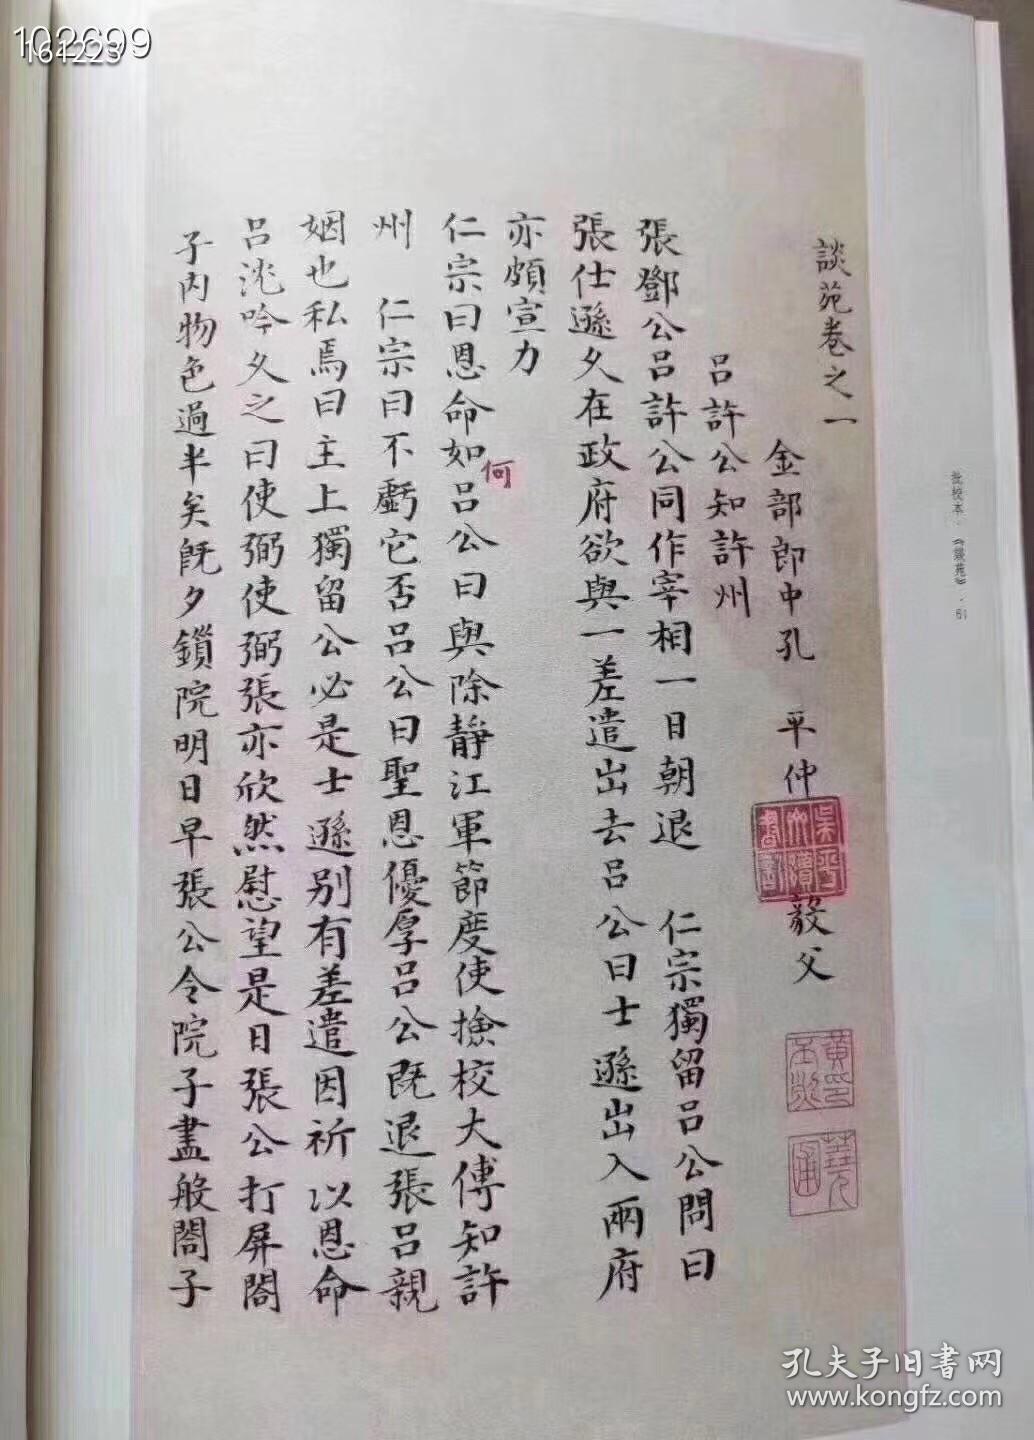 談苑卷之一
金部郎中孔 平仲 毅父
呂許公知許州
張鄧公呂許公同作宰相一日朝退 仁宗獨留呂公問曰
張仕遜久在政府欲與一差遣出去呂公曰士遜出入兩府
亦頗宣力
仁宗曰恩命如何呂公曰與除靜江軍節度使撿校大傅知許
州 仁宗曰不虧它否呂公曰聖恩優厚呂公既退張呂親
姻也私焉曰主上獨留公必是士遜別有差遣因祈以恩命
呂沈吟久之曰使弼使弼張亦欣然慰望是日張公打屏閤
子內物色過半矣既夕鎖院明日早張公令院子盡般閤子
批校本·《談苑》·61
102699
164223
孔夫子旧书网
www.kongfz.com